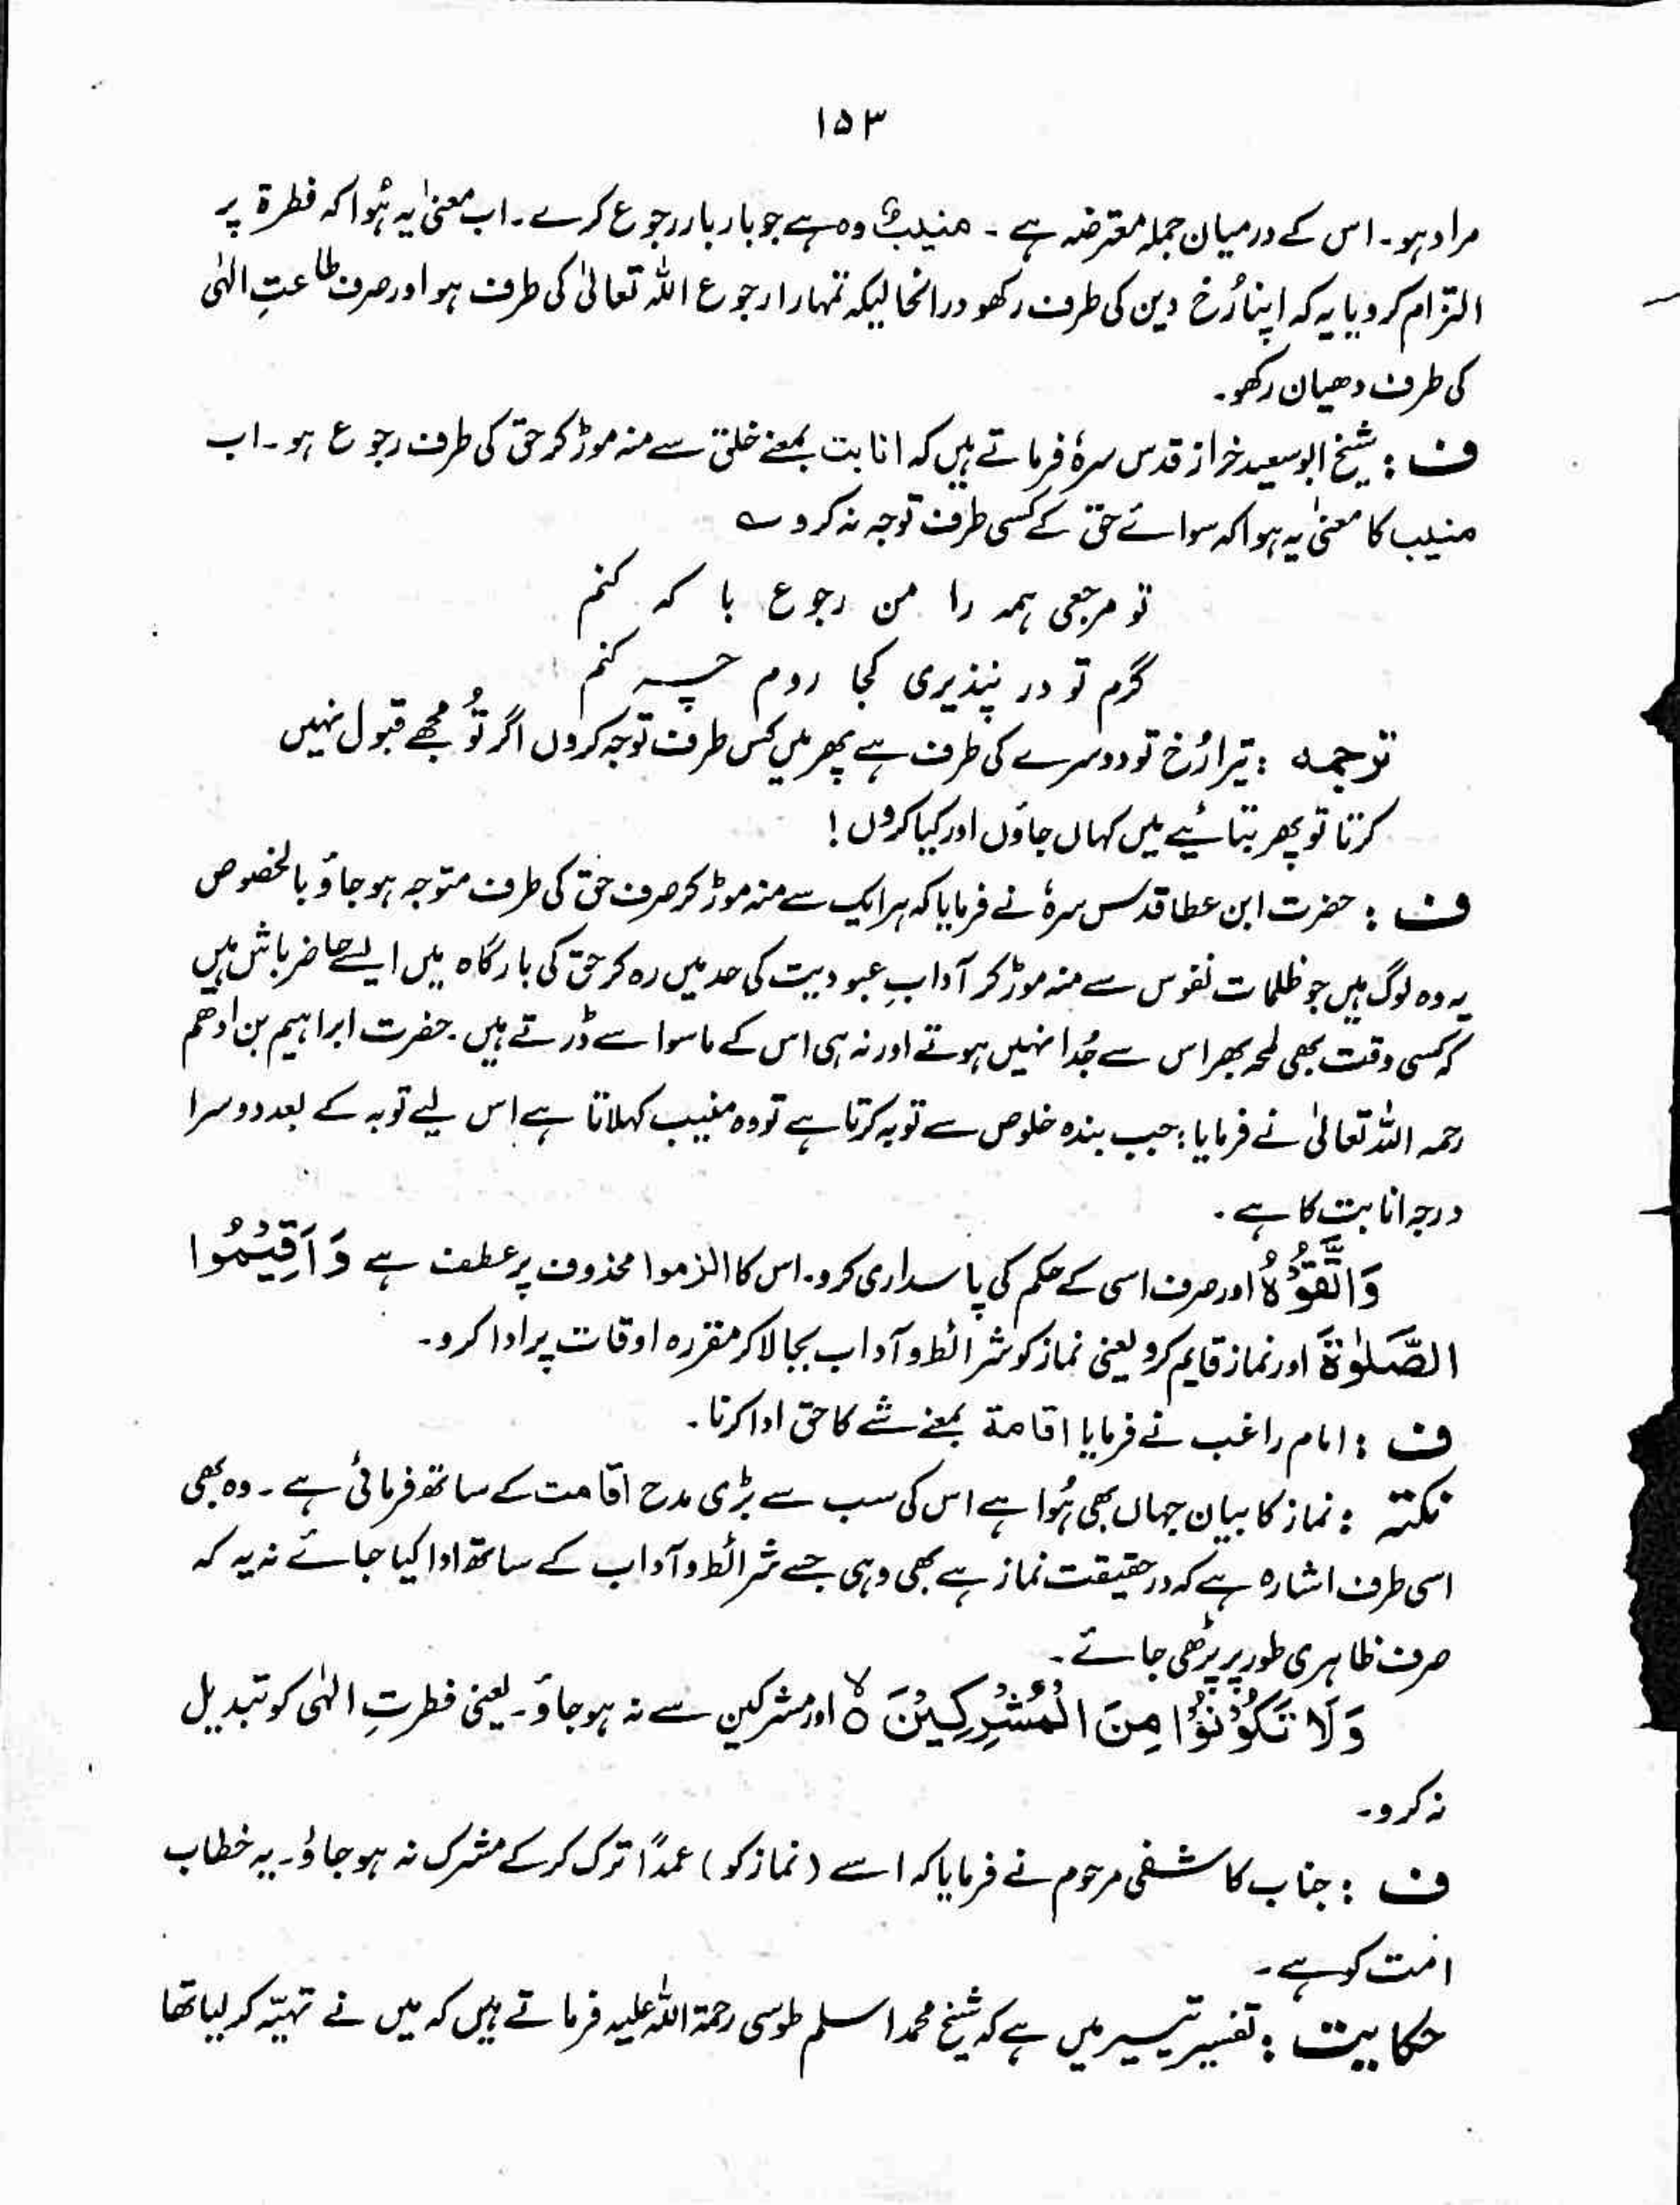 ۱۵۳
مراد ہو۔ اس کے درمیان جملہ معترضہ ہے ۔ منیبٌ وہ ہے جو بار بار رجوع کرے ۔ اب معنیٰ یہ ہُوا کہ فطرۃ پر
التزام کرو یا یہ کہ اپنا رُخ دین کی طرف رکھو درانحالیکہ تمہارا رجوع اللہ تعالیٰ کی طرف ہو اور صرف طاعتِ الٰہی
کی طرف دھیان رکھو۔
ف : شیخ ابوسعید خراز قدس سرہٗ فرماتے ہیں کہ انابت بمعنے خلق سے منہ موڑ کر حق کی طرف رجوع ہو ۔ اب
منیب کا معنیٰ یہ ہوا کہ سوائے حق کے کسی طرف توجہ نہ کرو ؎
تو مرجعی ہمہ را من رجوع با کہ کنم
گرم تو در نپذیری کجا روم چہ کنم
ترجمہ : تیرا رُخ تو دوسرے کی طرف ہے پھر میں کس طرف توجہ کروں اگر تُو مجھے قبول نہیں
کرتا تو پھر بتائیے میں کہاں جاؤں اور کیا کروں !
ف : حضرت ابن عطا قدس سرہٗ نے فرمایا کہ ہر ایک سے منہ موڑ کر صرف حق کی طرف متوجہ ہو جاؤ بالخصوص
یہ وہ لوگ ہیں جو ظلمات نفوس سے منہ موڑ کر آدابِ عبودیت کی حد میں رہ کر حق کی بارگاہ میں ایسے حاضر باش ہیں
کہ کسی وقت بھی لمحہ بھر اس سے جُدا نہیں ہوتے اور نہ ہی اس کے ماسوا سے ڈرتے ہیں ۔ حضرت ابراہیم بن ادھم
رحمہ اللہ تعالیٰ نے فرمایا : جب بندہ خلوص سے توبہ کرتا ہے تو وہ منیب کہلاتا ہے اس لیے توبہ کے بعد دوسرا
درجہ انابت کا ہے ۔
وَاتَّقُوْهُ اور صرف اسی کے حکم کی پاسداری کرو۔ اس کا الزموا محذوف پر عطف ہے وَ اَقِیْمُوا
الصَّلٰوةَ اور نماز قایم کرو یعنی نماز کو شرائط و آداب بجا لا کر مقررہ اوقات پر ادا کرو۔
ف : امام راغب نے فرمایا اقامۃ بمعنے شے کا حق ادا کرنا ۔
نکتہ : نماز کا بیان جہاں بھی ہُوا ہے اس کی سب سے بڑی مدح اقامت کے ساتھ فرمائی ہے ۔ وہ بھی
اسی طرف اشارہ ہے کہ درحقیقت نماز ہے بھی وہی جسے شرائط و آداب کے ساتھ ادا کیا جائے نہ یہ کہ
صرف ظاہری طور پر پڑھی جائے ۔
وَلَا تَكُوْنُوْا مِنَ الْمُشْرِكِيْنَ ۝ لا اور مشرکین سے نہ ہو جاؤ ۔ یعنی فطرتِ الٰہی کو تبدیل
نہ کرو۔
ف : جناب کاشفی مرحوم نے فرمایا کہ اسے (نماز کو) عمداً ترک کر کے مشرک نہ ہو جاؤ ۔ یہ خطاب
امت کو ہے ۔
حکایت : تفسیر تیسیر میں ہے کہ شیخ محمد اسلم طوسی رحمۃ اللہ علیہ فرماتے ہیں کہ میں نے تہیّہ کر لیا تھا